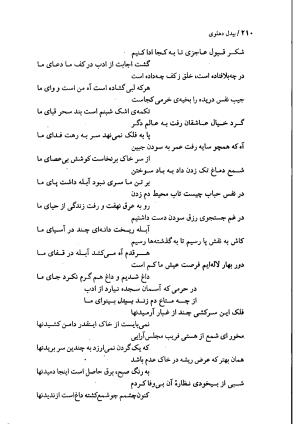 ۲۱۰ / بیدل دهلوی
شکر قبول عاجزی تا به کجا ادا کنیم
گشت اجابت از ادب در کف ما دعای ما
در چه‌بلافتاده است، خلق ز کف چه‌داده است
هرکه لبی گشاده است آه من است و وای ما
جیب نفس دریده را بخیه‌ی خرمی کجاست
تکمه‌ی اشک شبنم است بند سحر قبای ما
گرد خیال عاشقان رفت به عالم دگر
پا به فلک نمی‌نهد سر به رهت فدای ما
آه که همچو سایه رفت عمر به سودن جبین
از سر خاک برنخاست کوشش بی‌عصای ما
شمع دماغ تک زدن داد به باد سوختن
بر تن ما سری نبود آبله داشت پای ما
در نفس حباب چیست تاب محیط دم زدن
رو به عرق نهفت و رفت زندگی از حیای ما
در غم جستجوی رزق سودن دست داشتیم
آبله ریخت دانه‌ای چند در آسیای ما
کاش به نقش پا رسیم تا به گذشته‌ها رسیم
هرقدم آه می‌کشد آبله در قفای ما
دور بهار لاله‌ایم فرصت عیش ما کم است
داغ شدیم و داغ هم گرم نکرد جای ما
در حرمی که آسمان سجده نیارد از ادب
از چه متاع دم زند بیدل بینوای ما
فلک این سرکشی چند از غبار آرمیدنها
نمی‌بایست از خاک اینقدر دامن کشیدنها
مخور ای شمع از هستی فریب مجلس‌آرایی
که یک گردن نمی‌ارزد به چندین سر بریدنها
همان بهتر که عرض ریشه در خاک عدم باشد
به رنگ صبح، برق حاصل است اینجا دمیدنها
شبی از بیخودی نظاره آن بی‌وفا کردم
کنون‌چشمم چو شمع‌کشته داغ است از ندیدنها